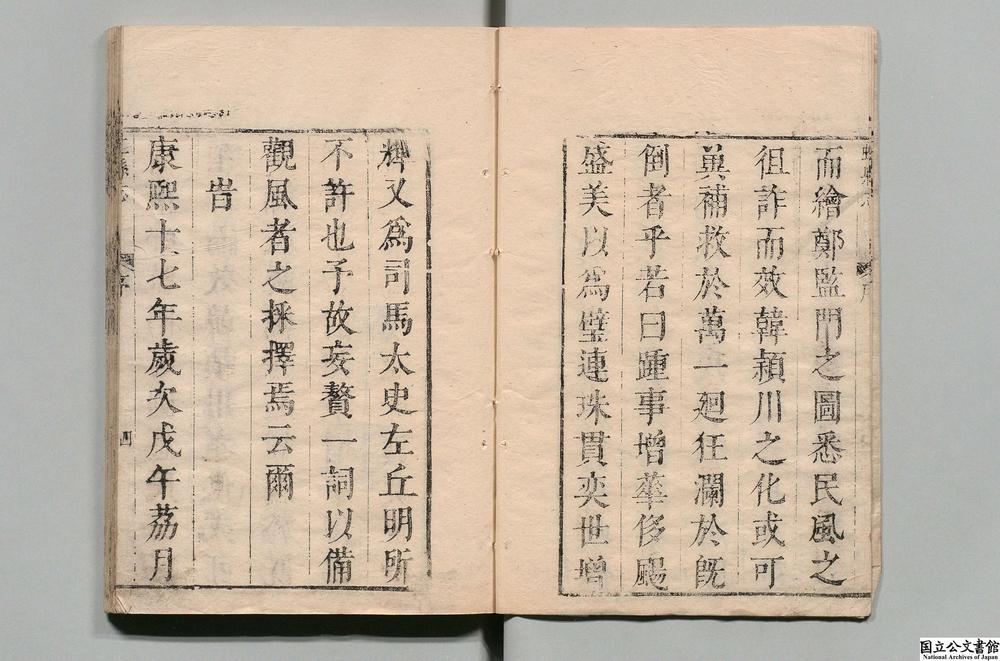 而繪鄭監門之圖悉民風之
徂詐而效韓潁川之化或可
冀補救於萬一廻狂瀾於既
倒者乎若曰踵事增華侈颺
盛美以爲璧連珠貫奕世增
輝又爲司馬太史左丘明所
不許也予故妄贅一詞以備
觀風者之採擇焉云爾
旹
康熈十七年歲次戊午荔月
序
四
国立公文書館
National Archives of Japan